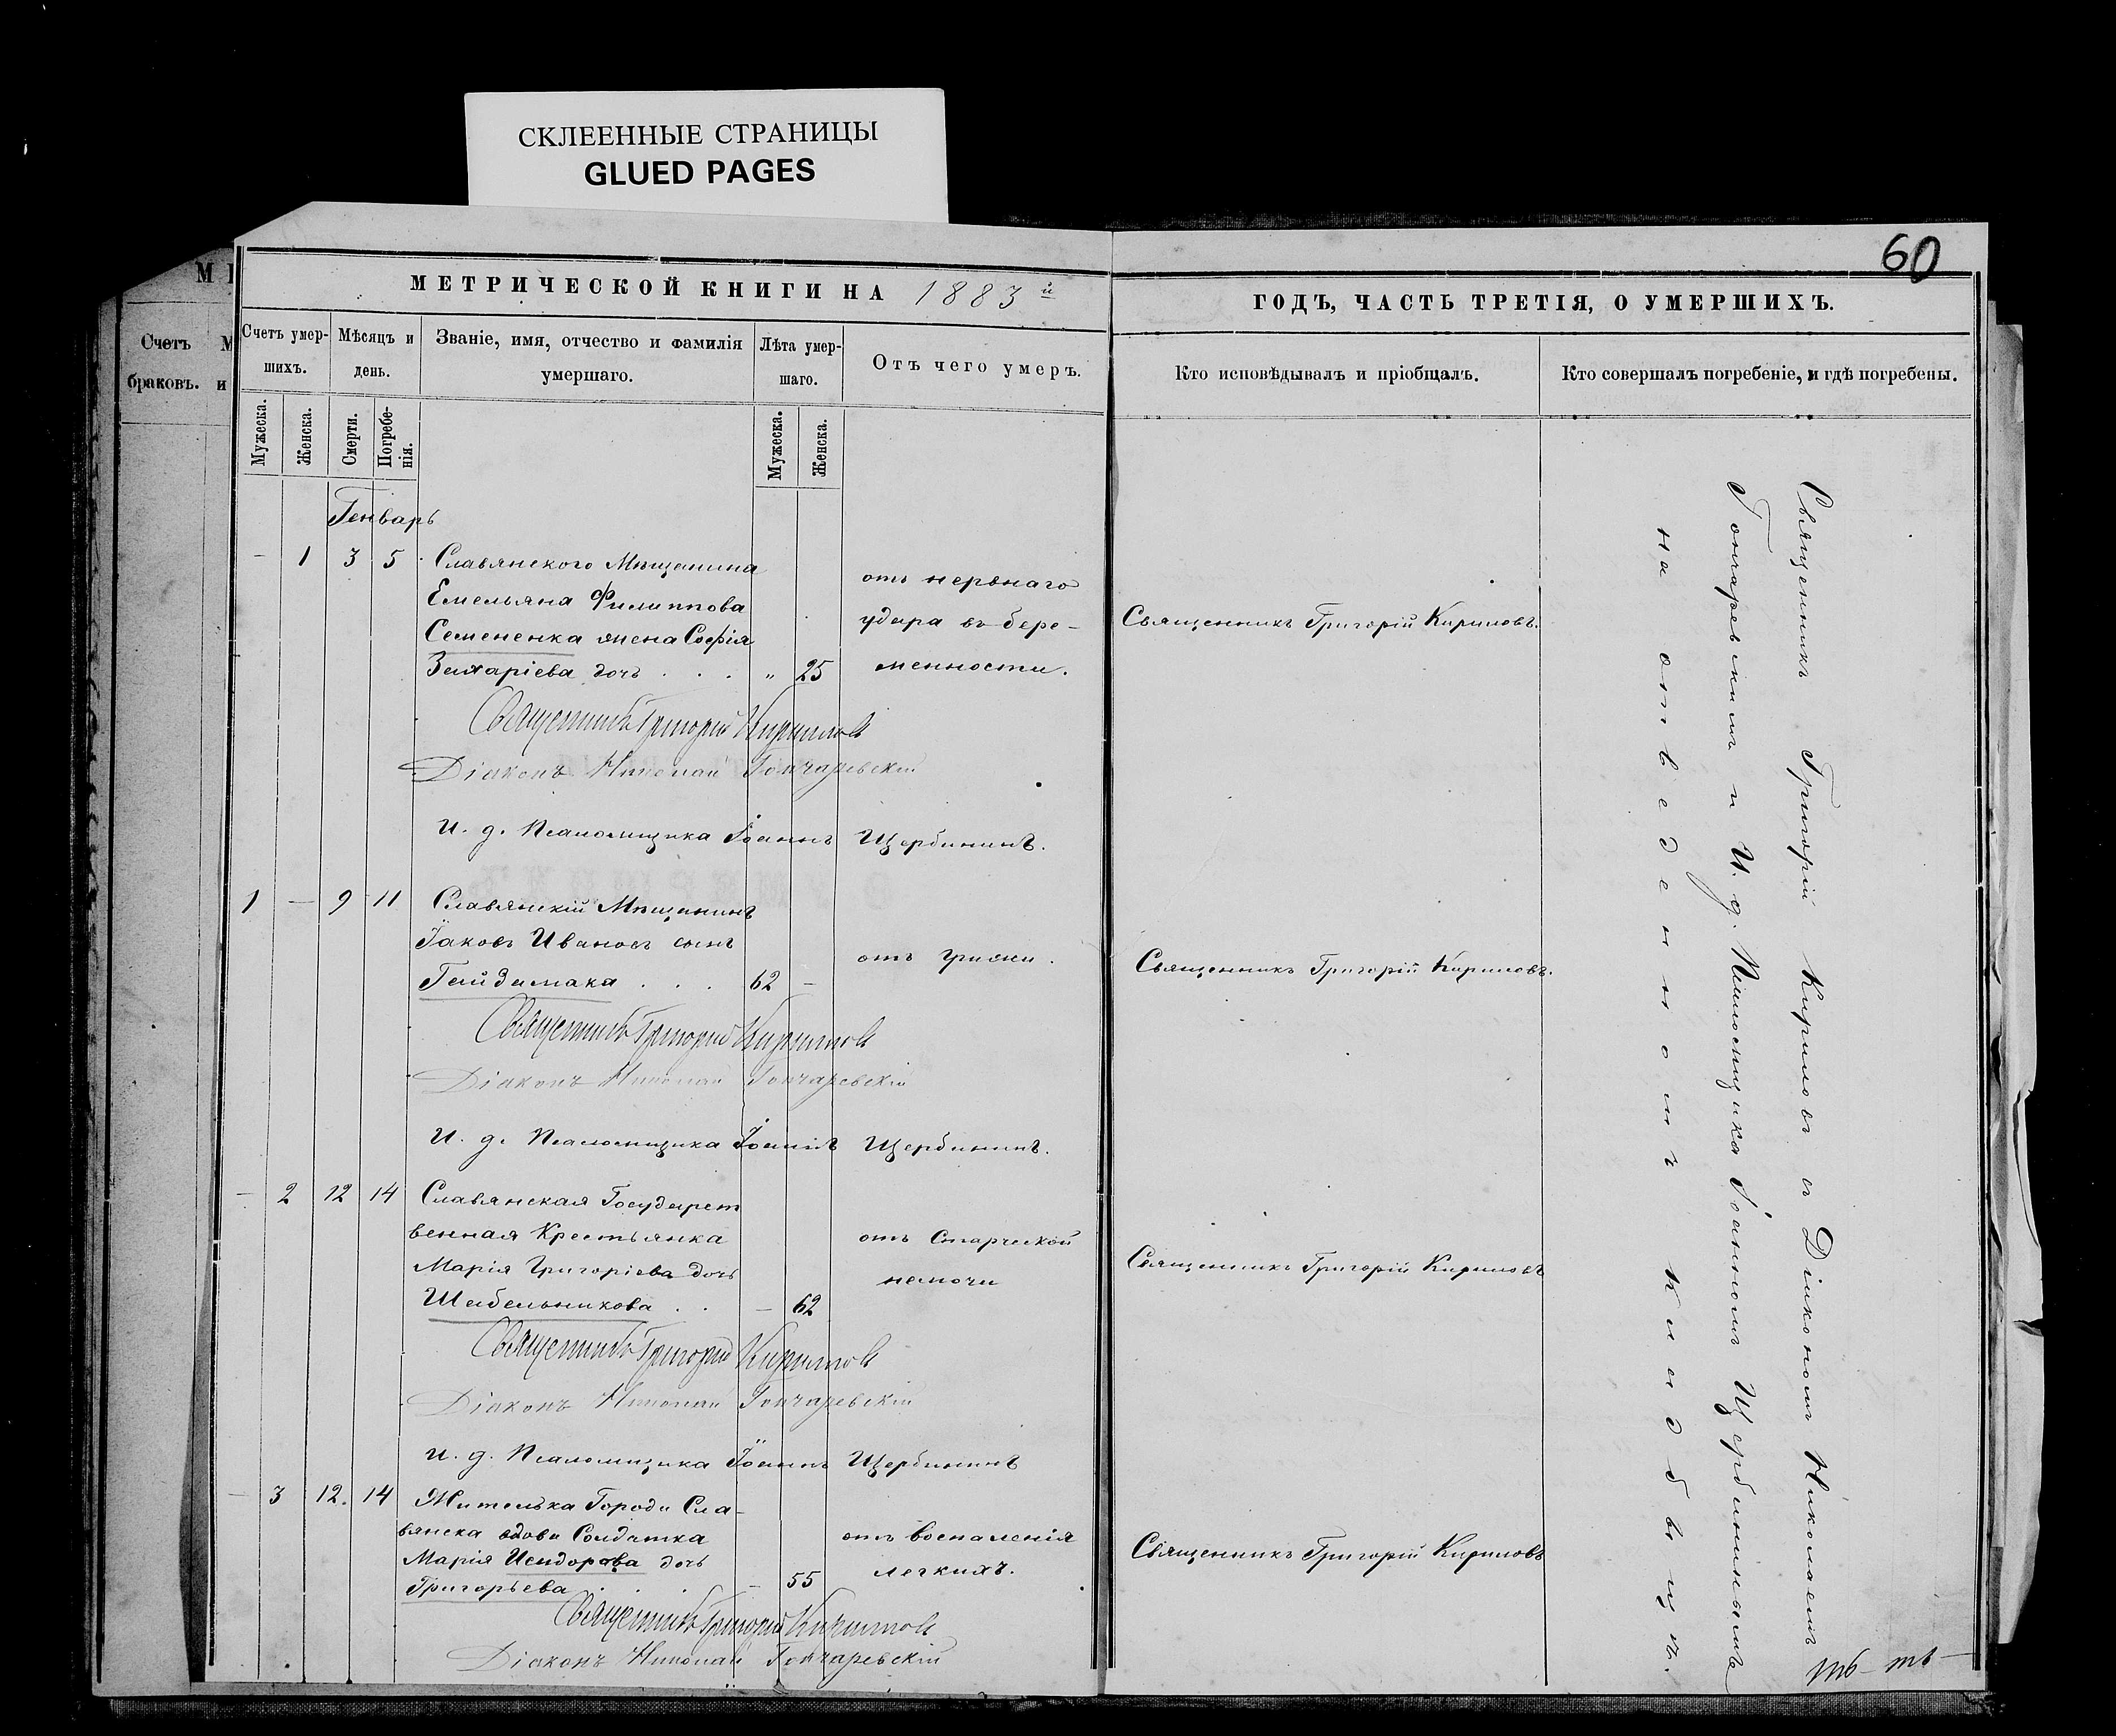 СКЛЕЕННЫЕ СТРАНИЦЫ
GLUED PAGES
60
МЕТРИЧЕСКОЙ КНИГИ НА 1883й
ГОДЪ, ЧАСТЬ ТРЕТІЯ, О УМЕРШИХЪ.
Счетъ
браковъ.
Счетъ умер-
шихъ.
Мѣсяцъ и
день.
Званіе, имя, отчество и фамилія
умершаго.
Лѣта умер-
шаго.
Отъ чего умеръ.
Кто исповѣдывалъ и пріобщалъ.
Кто совершалъ погребеніе, и гдѣ погребены.
Мужеска.
Женска.
Смерти.
Погребе-
нія.
Мужеска.
Женска.
Генварь
– 1 3 5 Славянского Мѣщанина
Емельяна Филиппова
Семененка жена Софія
Захаріева дочь . . . „ 25
отъ нервнаго
удара въ бере-
менности.
Священникъ Григорій Кириловъ.
Священникъ Григорій Кириловъ
Діаконъ Николай Гончаревскій
И. д. Псаломщика Іоаннъ Щербининъ.
1 – 9 11 Славянскій Мѣщанинъ
Іаковъ Ивановъ сынъ
Гайдамака . . . 62 –
отъ грижи.
Священникъ Григорій Кириловъ.
Священникъ Григорій Кириловъ
Діаконъ Николай Гончаревскій
И. д. Псаломщика Іоаннъ Щербининъ.
– 2 12 14 Славянская Государст
венная Крестьянка
Марія Григоріева дочь
Шабельникова . . – 62
отъ Старческой
немочи
Священникъ Григорій Кириловъ
Священникъ Григорій Кириловъ
Діаконъ Николай Гончаревскій
И. д. Псаломщика Іоаннъ Щербининъ
– 3 12. 14 Жителька Города Сла-
вянска вдова Солдатка
Марія Исидорова дочь
Григорьева . . . – 55
отъ воспаленія
легкихъ.
Священникъ Григорій Кириловъ
Священникъ Григорій Кириловъ
Діаконъ Николай Гончаревскій
Священникъ Григорій Кириловъ съ Діакономъ Николаемъ
Гончаревскимъ и И. д. Псаломщика Іоанномъ Щербининымъ
на отведенномъ кладбищѣ.